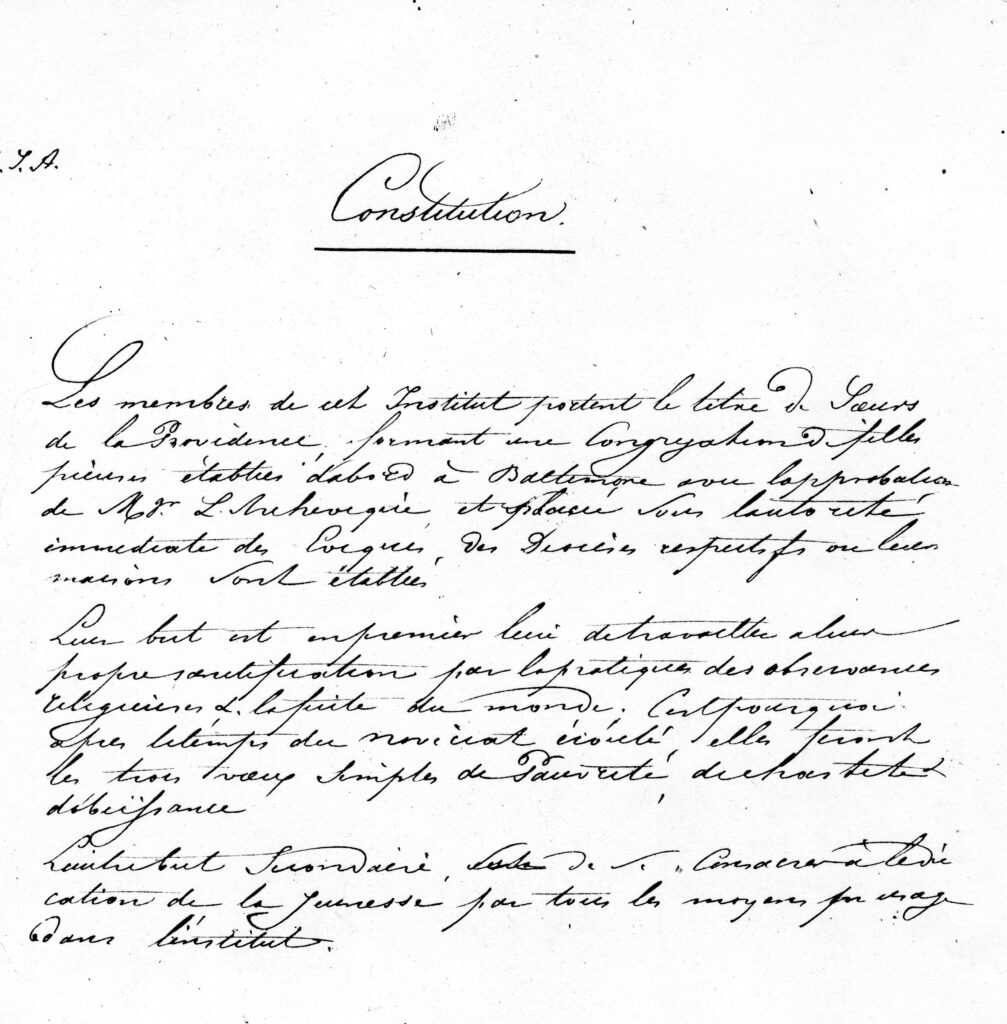 . I. A.
Constitution.
Les membres de cet Institut portent le titre de Sœurs
de la Providence, formant une Congregation de filles
pieuses établies d'abord à Baltimore avec l'approbation
de Mgr. L'Archeveque et placée sous l'autorité
immediate des Evêques, des Diocèses respectifs ou leur
maisons sont établies
Leur but est en premier lieu de travailler a leur
propre santification par la pratiques des observances
religieuses & la fuite du monde. C'est pourquoi
apres le temps du noviciat écoulé, elles feront
les trois vœux Simples de Pauvreté, de chasteté &
d'obeissance
L'autre but Secondaire, de se Consacrer à l'edu
cation de la Jeunesse par tous les moyens en usage
dans l'institut.